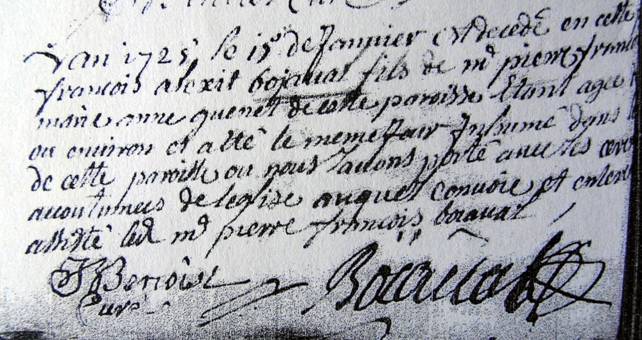 Lan 1725 le 15 de Janvier est decedé en cette
françois alexis bojavat fils de mr pierre fran
marie anne quenet de cette paroisse Etant agee
ou environ et a eté le meme Jour Inhumé dans
de cette paroisse ou nous lavons porté avec les cere
acoutumees de leglise auquel convoie et entere
assisté led mr pierre françois boiavat
JBenoist Boiavat
Curé